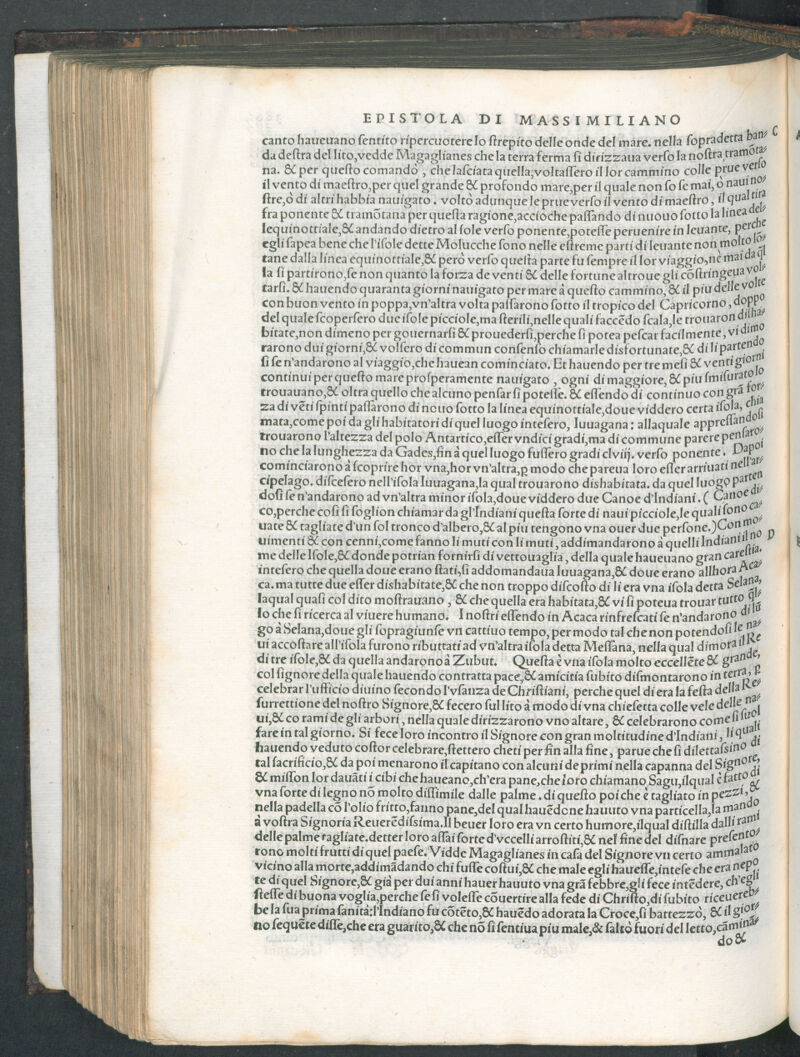 EPISTOLA DI MASSIMILIANO
canto haueuano ſentito ripercuotere lo ſtrepito delle onde del mare. nella ſopradetta ban⸗ C
da deſtra del lito, vedde Magaglianes che la terra ferma ſi dirizzaua verſo la noſtra tramõta⸗
na. & per queſto comandò, che laſciata quella, voltaſſero il lor cammino colle prue verſo
il vento di maeſtro, per quel grande & profondo mare, per il quale non ſo ſe mai, ò naui no⸗
ſtre, ò di altri habbia nauigato. voltò adunque le prue verſo il vento di maeſtro, il qual tira
fra ponente & tramõtana per queſta ragione, accioche paſſando di nuouo ſotto la linea del⸗
lequinottiale, & andando dietro al ſole verſo ponente, poteſſe peruenire in leuante, perche
egli ſapea bene che l'iſole dette Molucche ſono nelle eſtreme parti di leuante non molto lõ⸗
tane dalla linea equinottiale, & però verſo queſta parte fu ſempre il lor viaggio, ne mai da ql
la ſi partirono, ſe non quanto la forza de venti & delle fortune altroue gli cõſtringeua vol⸗
tarſi. & hauendo quaranta giorni nauigato per mare à queſto cammino, & il piu delle volte
con buon vento in poppa, vn'altra volta paſſarono ſotto il tropico del Capricorno, doppo
del quale ſcoperſero due iſole picciole, ma ſterili, nelle quali faccẽdo ſcala, le trouaron diſha⸗
bitate, non dimeno per gouernarſi & prouederſi, perche ſi potea peſcar facilmente, vi dimo
rarono dui giorni, & volſero di commun conſenſo chiamarle disfortunate, & di li partendo
ſi ſe n'andarono al viaggio, che hauean cominciato. Et hauendo per tre meſi & venti giorni
continui per queſto mare proſperamente nauigato, ogni di maggiore, & piu ſmiſurato lo
trouauano, & oltra quello che alcuno penſar ſi poteſſe. & eſſendo di continuo con grã for⸗
za di vẽti ſpinti paſſarono di nouo ſotto la linea equinottiale, doue viddero certa iſola, chia
mata, come poi da gli habitatori di quel luogo inteſero, Iuuagana: allaquale appreſſandoſi
trouarono l'altezza del polo Antartico, eſſer vndici gradi, ma di commune parere penſaro⸗
no che la lunghezza da Gades, ſin à quel luogo fuſſero gradi clviij. verſo ponente. Dapoi
cominciarono à ſcoprire hor vna, hor vn'altra, p modo che pareua loro eſſer arriuati nell'ar⸗
cipelago. diſceſero nell'iſola Iuuagana, la qual trouarono dishabitata. da quel luogo parten
doſi ſe n'andarono ad vn'altra minor iſola, doue viddero due Canoe d'Indiani. ( Canoe di⸗
co, perche coſi ſi ſoglion chiamar da gl'Indiani queſta ſorte di naui picciole, le quali ſono ca⸗
uate & tagliate d'un ſol tronco d'albero, & al piu tengono vna ouer due perſone.) Con mo⸗
uimenti & con cenni, come fanno li muti con li muti, addimandarono à quelli Indiani il no D
me delle Iſole, & donde potrian fornirſi di vettouaglia, della quale haueuano gran careſtia.
inteſero che quella doue erano ſtati, ſi addomandaua Iuuagana, & doue erano allhora Aca⸗
ca. ma tutte due eſſer dishabitate, & che non troppo diſcoſto di li era vna iſola detta Selana,
laqual quaſi col dito moſtrauano, & che quella era habitata, & vi ſi poteua trouar tutto ql⸗
lo che ſi ricerca al viuere humano. I noſtri eſſendo in Acaca rinfreſcati ſe n'andarono di lũ
go à Selana, doue gli ſopragiunſe vn cattiuo tempo, per modo tal che non potendoſi le na⸗
ui accoſtare all'iſola furono ributtati ad vn'altra iſola detta Meſſana, nella qual dimora il Re
di tre iſole, & da quella andarono à Zubut. Queſta è vna iſola molto eccellẽte & grande,
col ſignore della quale hauendo contratta pace, & amicitia ſubito diſmontarono in terra, p
celebrar l'ufficio diuino ſecondo l'vſanza de Chriſtiani, perche quel di era la feſta della Re⸗
ſurrettione del noſtro Signore, & fecero ſul lito à modo di vna chieſetta colle vele delle na⸗
ui, & co rami de gli arbori, nella quale dirizzarono vno altare, & celebrarono come ſi ſuol
fare in tal giorno. Si fece loro incontro il Signore con gran moltitudine d'Indiani, li quali
hauendo veduto coſtor celebrare, ſtettero cheti per fin alla fine, parue che ſi dilettaſsino di
tal ſacrificio, & da poi menarono il capitano con alcuni de primi nella capanna del Signore,
& miſſon lor dauãti i cibi che haueano, ch'era pane, che loro chiamano Sagu, ilqual è fatto di
vna ſorte di legno nõ molto diſſimile dalle palme. di queſto poi che è tagliato in pezzi, &
nella padella cõ l'olio fritto, fanno pane, del qual hauẽdone hauuto vna particella, la mando
à voſtra Signoria Reuerẽdiſsima. Il beuer loro era vn certo humore, ilqual diſtilla dalli rami
delle palme tagliate. detter loro aſſai ſorte d'vccelli arroſtiti, & nel fine del diſnare preſento⸗
rono molti frutti di quel paeſe. Vidde Magaglianes in caſa del Signore vn certo ammalato
vicino alla morte, addimãdando chi fuſſe coſtui, & che male egli haueſſe, inteſe che era nepo
te di quel Signore, & già per dui anni hauer hauuto vna grã febbre, gli fece intẽdere, ch'egli
ſteſſe di buona voglia, perche ſe ſi voleſſe cõuertire alla fede di Chriſto, di ſubito riceuereb⸗
be la ſua prima ſanità: l'Indiano fu cõtẽto, & hauẽdo adorata la Croce, ſi battezzò, & il gior⸗
no ſequẽte diſſe, che era guarito, & che nõ ſi ſentiua piu male, & ſaltò fuori del letto, cãminã⸗
do &